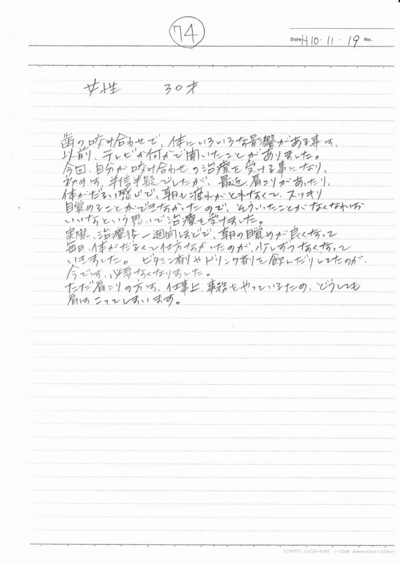 74
Date H10・11・19 No.
女性 30才
歯の咬み合わせで、体にいろいろな影響がある事は、
以前、テレビか何かで聞いたことがありました。
今回、自分が咬み合わせの治療を受ける事になり、
初めは、半信半疑でしたが、最近、肩こりがあったり、
体がだるい感じで、朝も疲れがとれなくて、スッキリ
目覚めることができなかったので、そういったことがなくなれば
いいなという思いで治療を受けました。
実際、治療後一週間ほどで、朝の目覚めが良くなって
毎日、体がだるくて仕方なかったのが、少しずつなくなって
いきました。ビタミン剤やドリンク剤を飲んだりしてたのが、
今では、必要なくなりました。
ただ肩こりの方は、仕事上、事務をやっているため、どうしても
肩はこってしまいます。